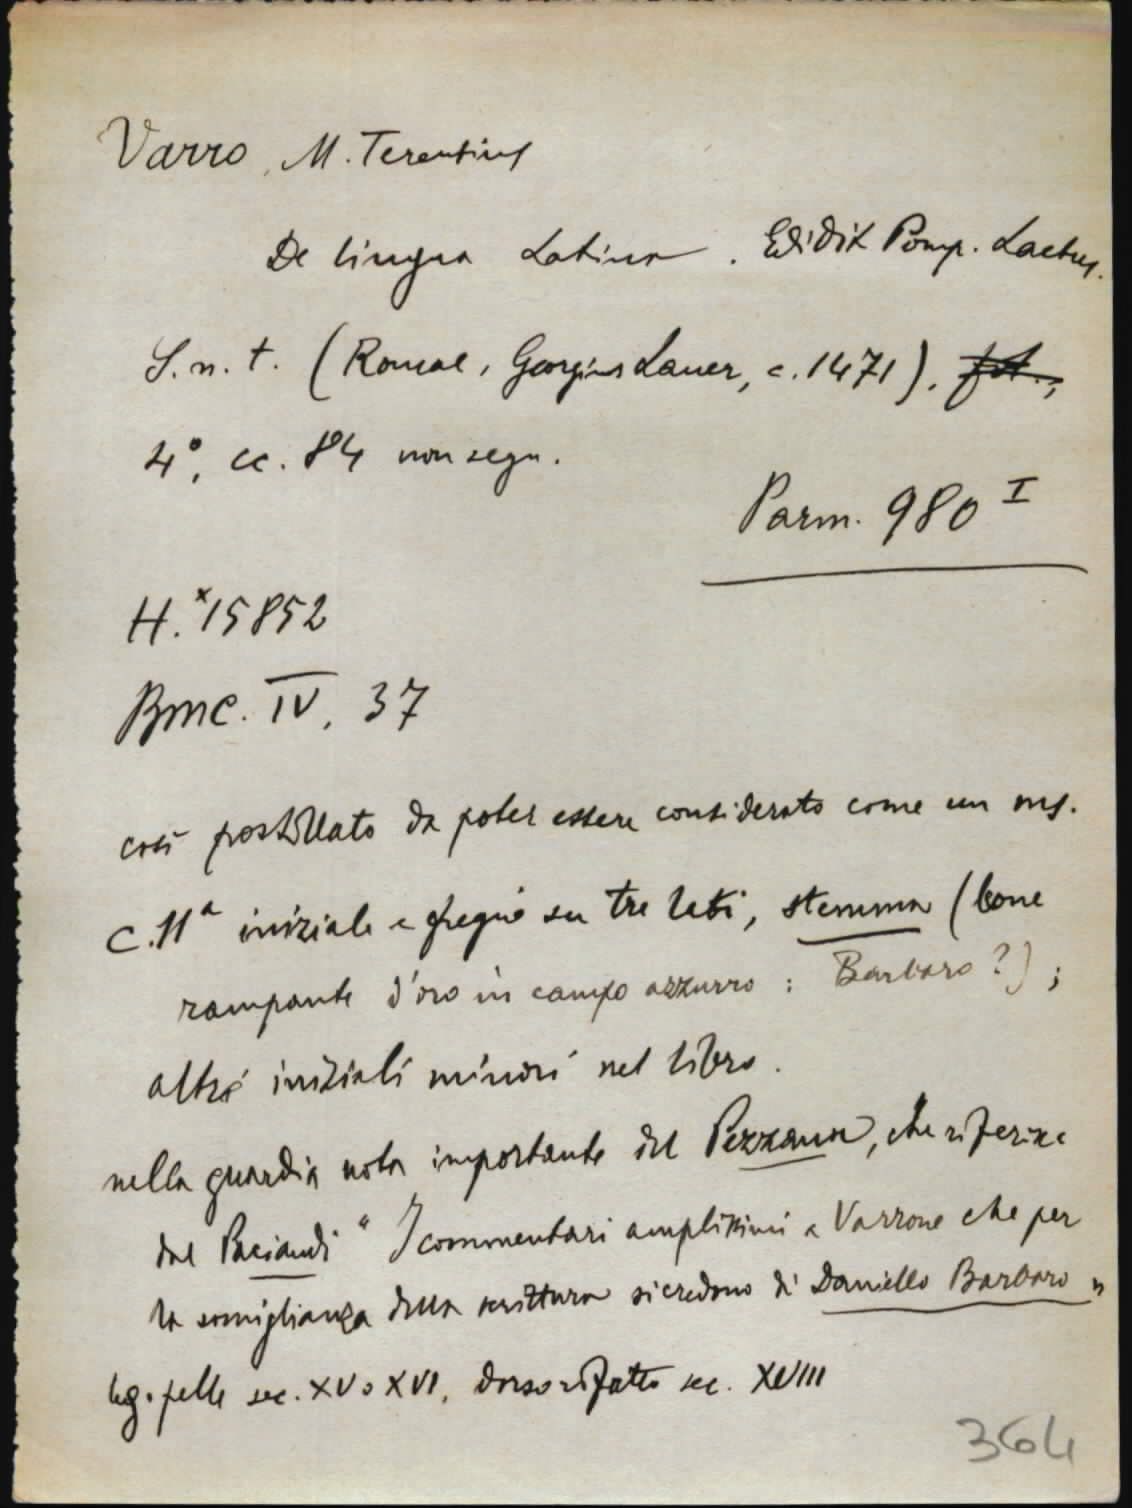 Varro, M. Terentius
De lingua Latina. Edidit Pomp. Laetus.
S. n. t. (Romae, Georgius Lauer, c. 1471).
4°, cc. 84 non segn.
Parm. 980 I
H.*15852
BMC. IV, 37
così postillato da poter essere considerato come un ms.
c. 11a iniziale e fregio su tre lati, stemma (leone
rampante d'oro in campo azzurro: Barbaro?);
altre iniziali minori nel libro.
nella guardia nota importante del Pezzana, che riferisce
dal Paciaudi "I commentari amplissimi a Varrone che per
la somiglianza della scrittura si credono di Daniello Barbaro"
leg. pelle sec. XV o XVI, dorso rifatto sec. XVIII
364